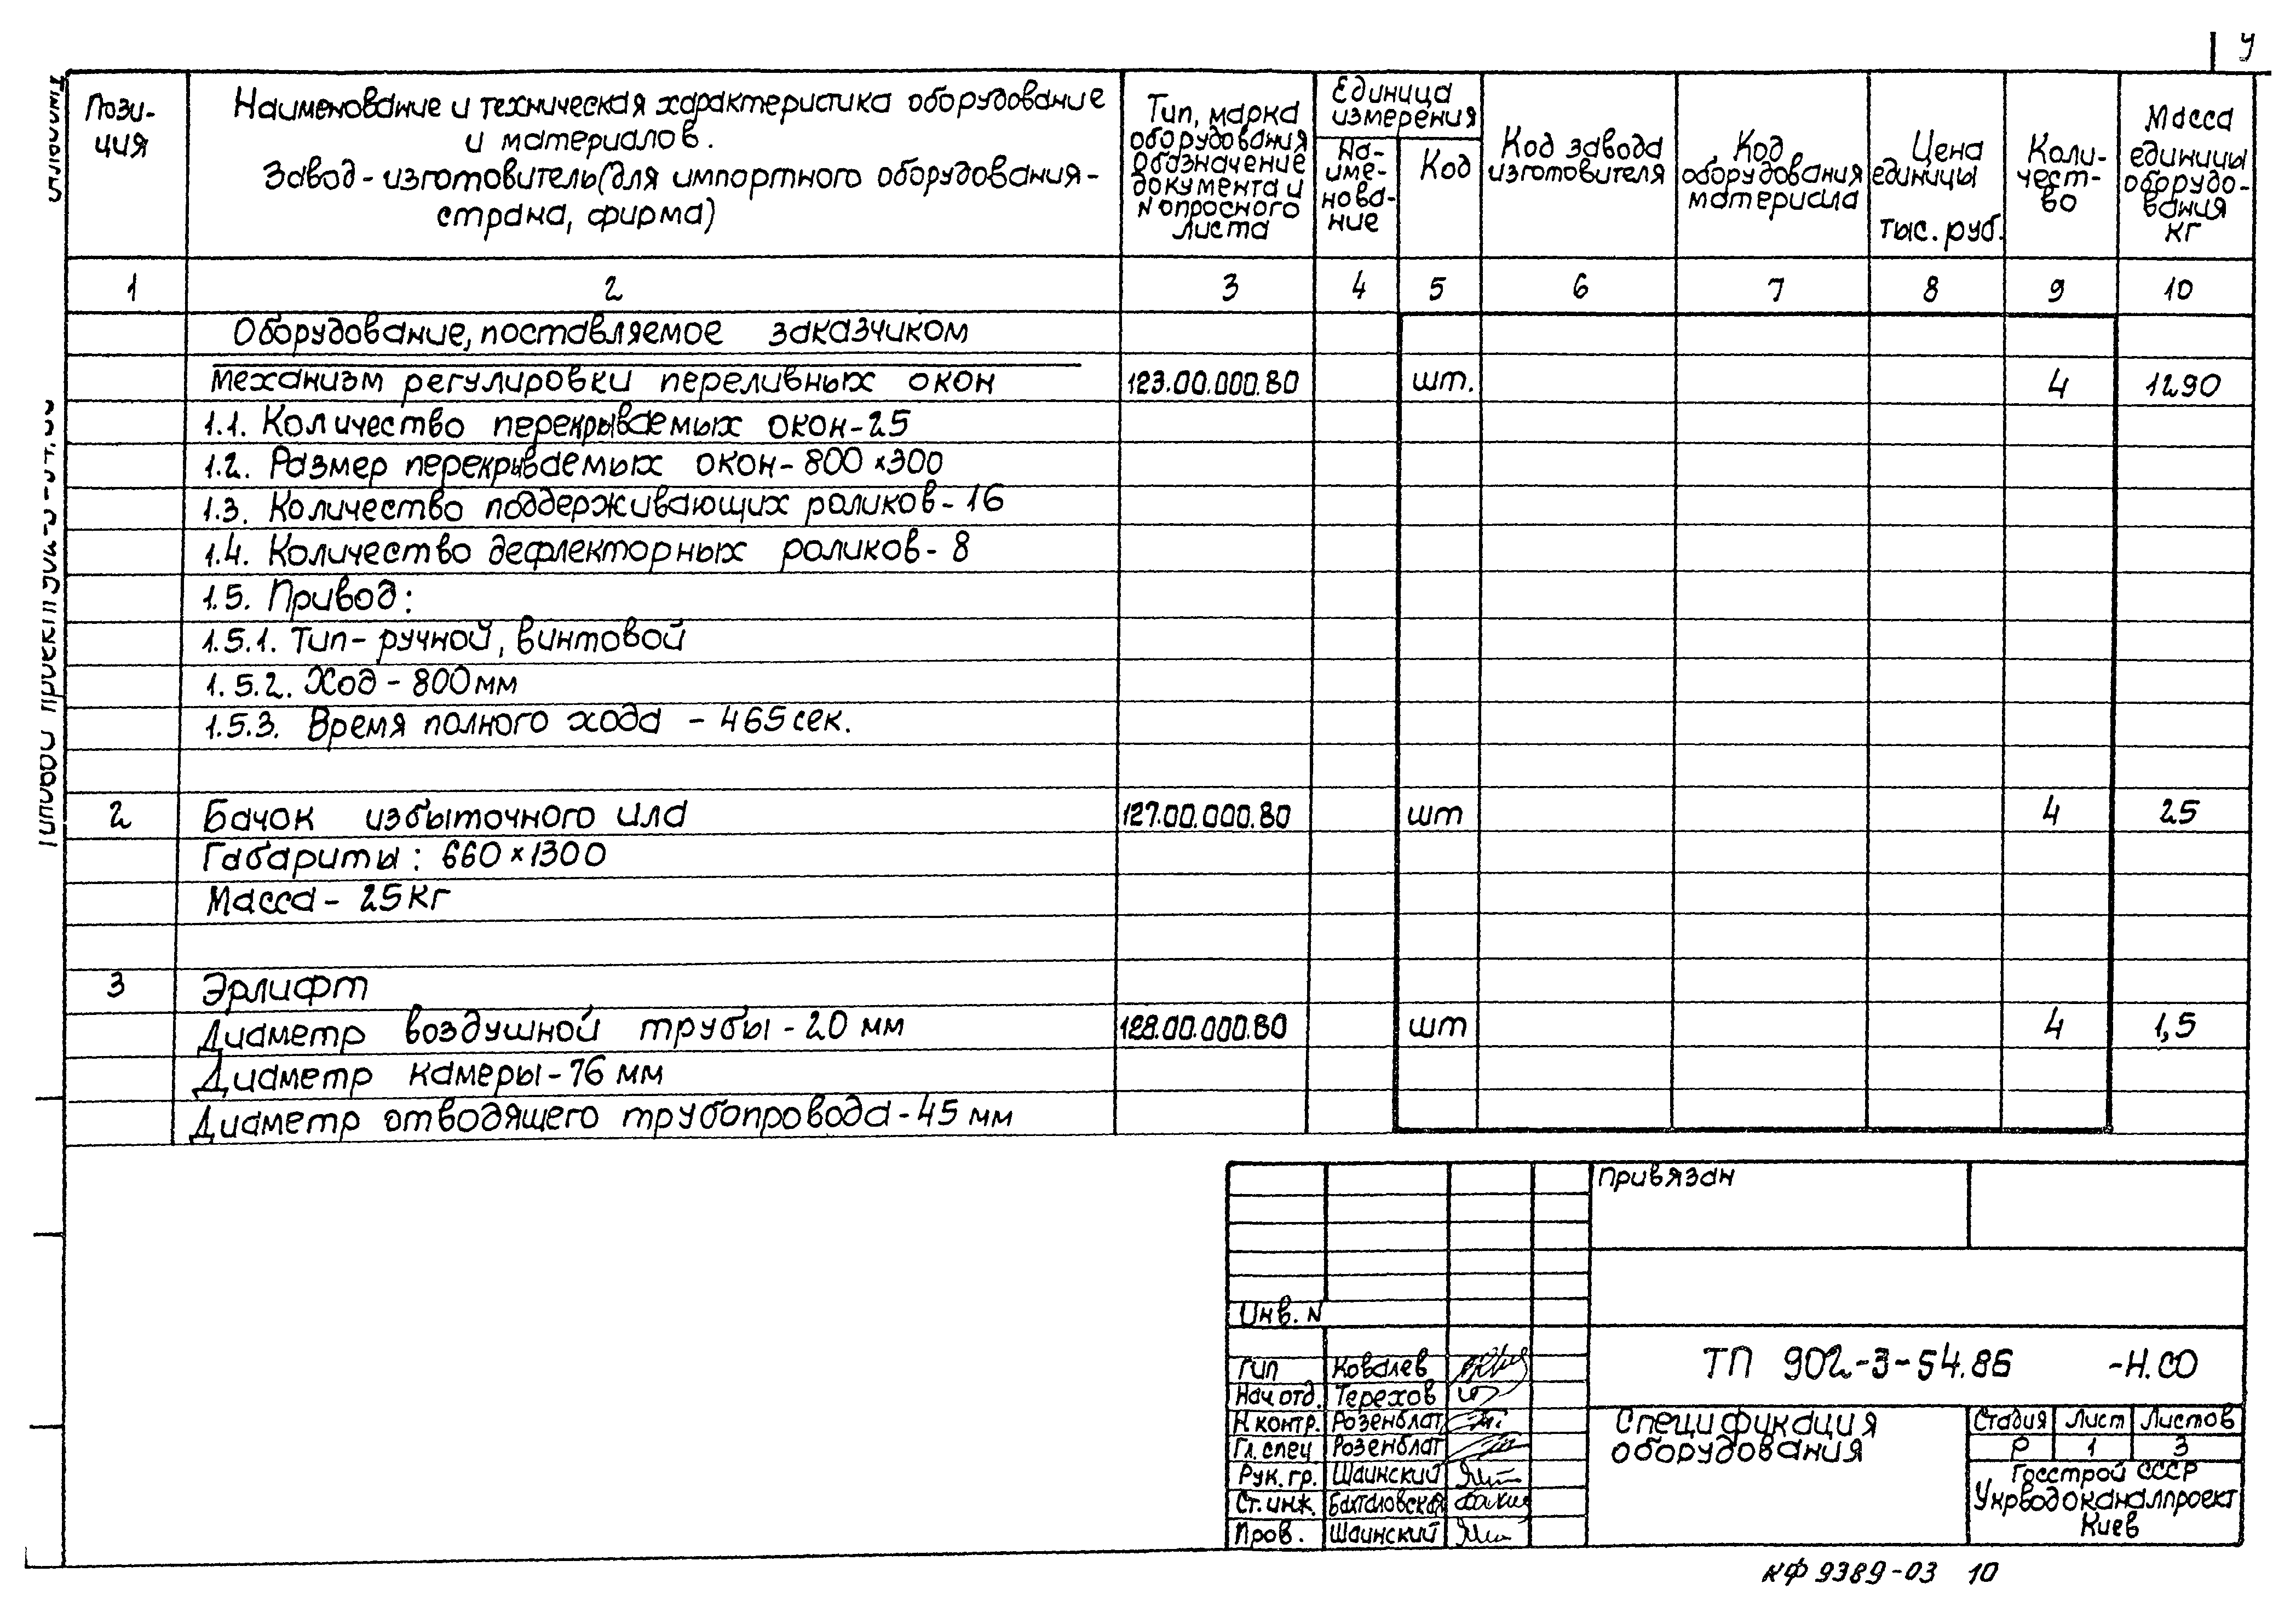 4
Пози-
ция
Наименование и техническая характеристика оборудование
и материалов.
Завод-изготовитель(для импортного оборудования-
страна, фирма)
Тип, марка
оборудования
Обозначение
документа и
N опросного
листа
Единица
измерения
На-
име-
нова-
ние
Код
Код завода
изготовителя
Код
оборудования
материала
Цена
единицы
тыс. руб.
Коли-
чест-
во
Масса
единицы
оборудо-
вания
кг
1 2 3 4 5 6 7 8 9 10
Оборудование, поставляемое заказчиком
Механизм регулировки переливных окон 123.00.000.В0 шт. 4 1290
1.1. Количество перекрываемых окон-25
1.2. Размер перекрываемых окон-800×300
1.3. Количество поддерживающих роликов-16
1.4. Количество дефлекторных роликов-8
1.5. Привод:
1.5.1. Тип-ручной, винтовой
1.5.2. Ход-800мм
1.5.3. Время полного хода - 465 сек.
2 Бачок избыточного ила 127.00.000.В0 шт 4 25
Габариты: 660×1300
Масса-25кг
3 Эрлифт
Диаметр воздушной трубы-20 мм 128.00.000.В0 шт 4 1,5
Диаметр камеры-76 мм
Диаметр отводящего трубопровода-45 мм
Привязан
Инв. N
ТП 902-3-54.86 -Н.СО
Гип Ковалев
Нач отд. Терехов
Н контр. Розенблат
Гл. спец Розенблат
Рук. гр. Шаинский
Ст. инж.
Пров. Шаинский
Спецификация
оборудования
Стадия Лист Листов
Р 1 3
Госстрой СССР
Укрводоканалпроект
Киев
КФ 9389-03 10